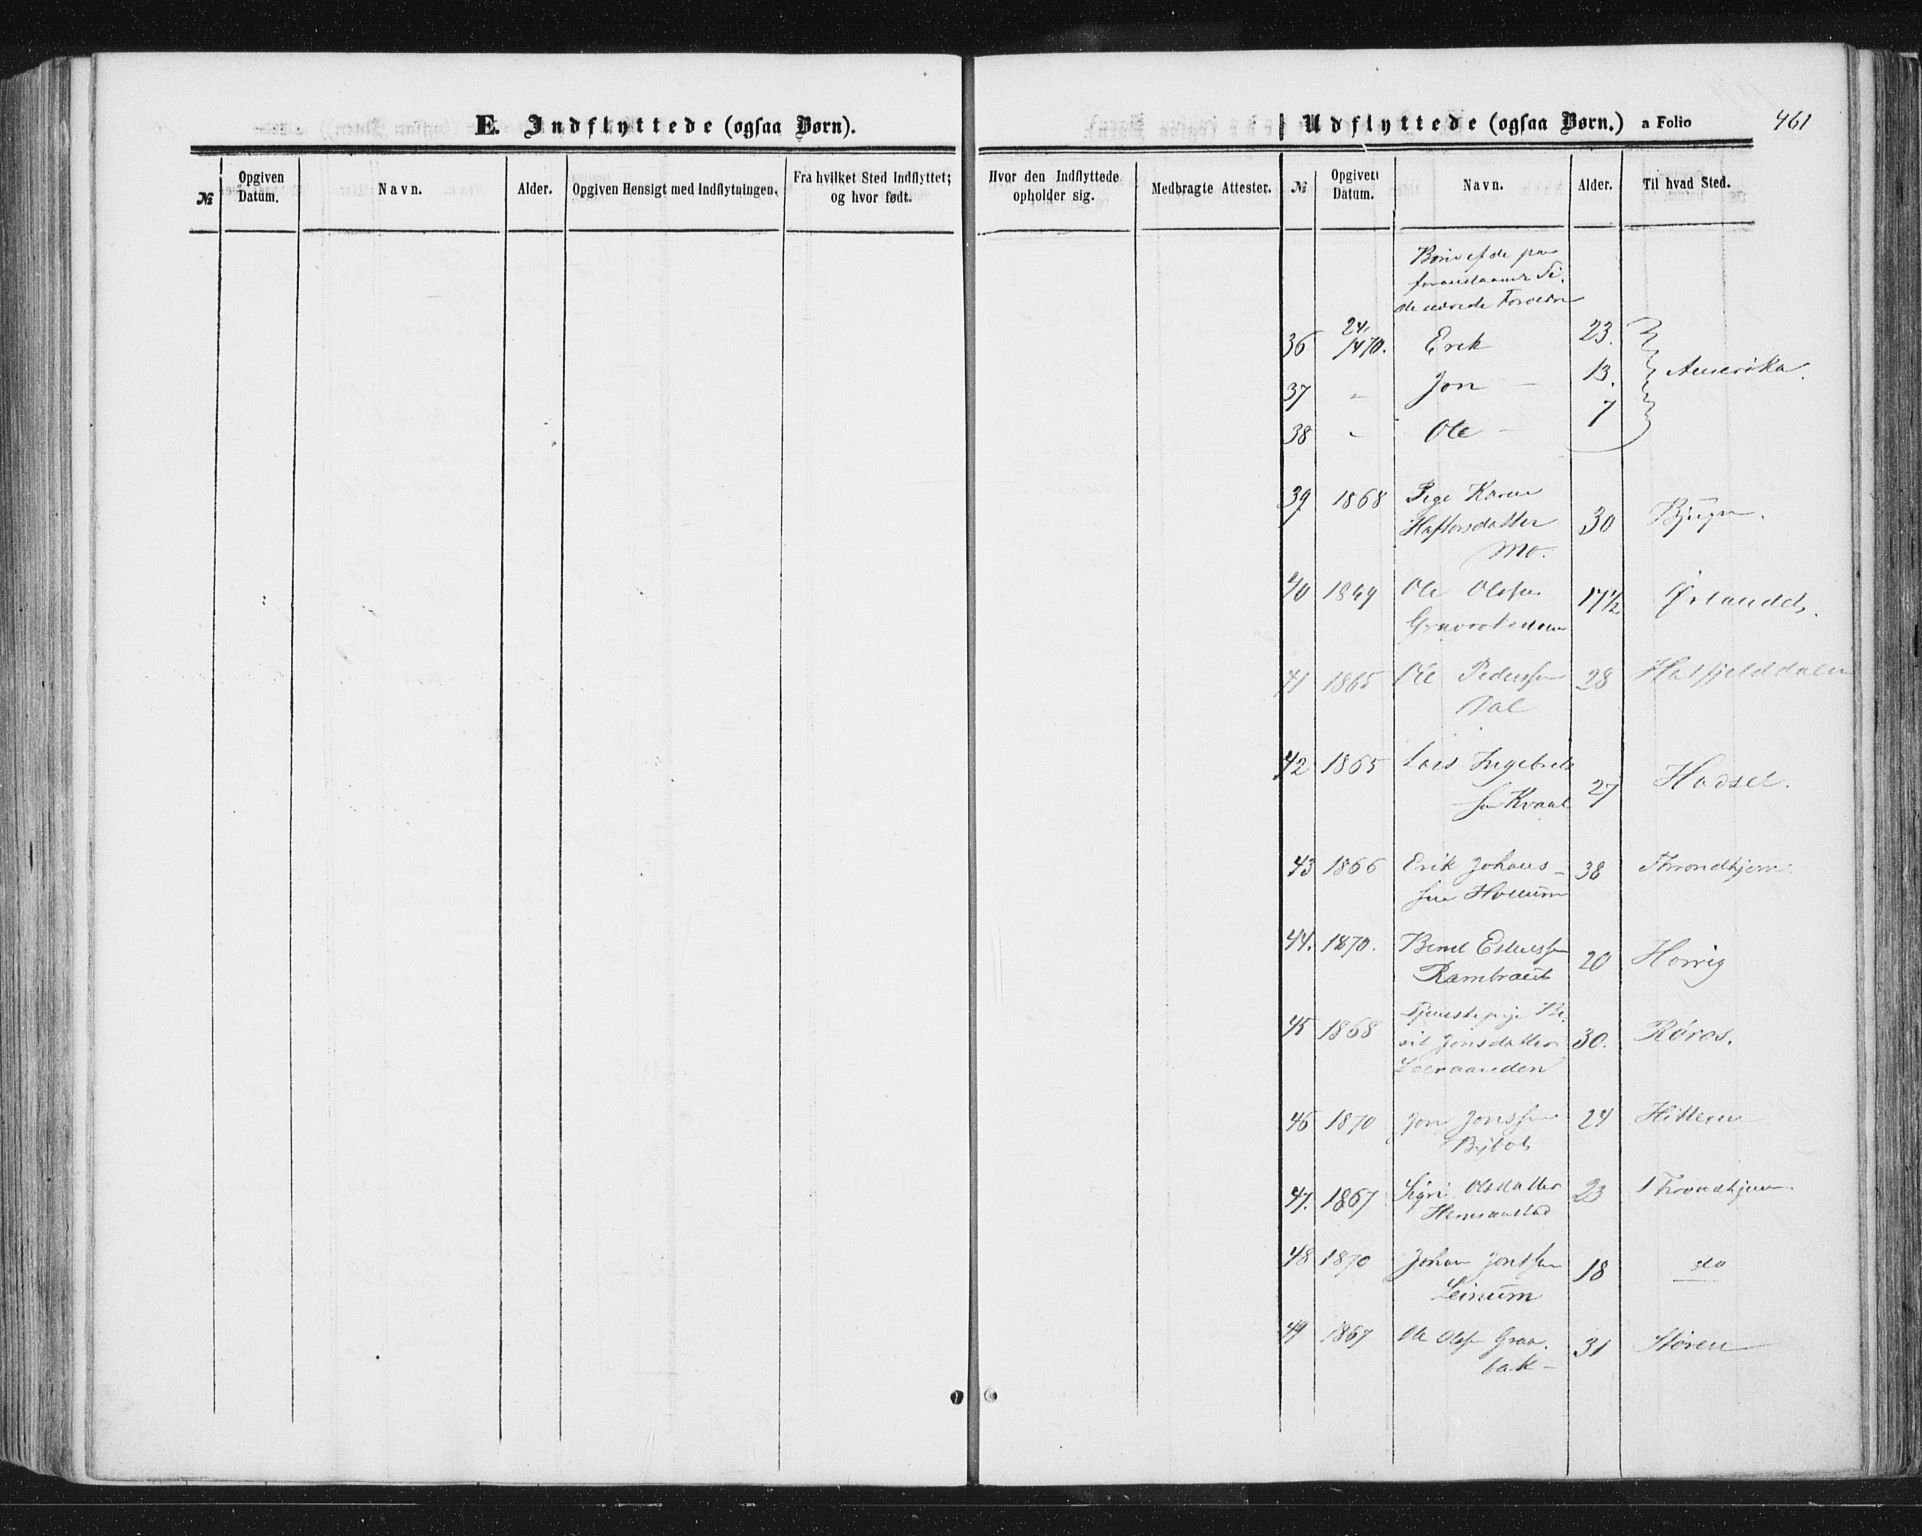 E. Indflyttede (ogsaa Børn).
Udflyttede (ogsaa Børn.) a Folio 461
№ Opgiven Datum. Navn. Alder. Opgiven Hensigt med Indflytningen. Fra hvilket Sted Indflyttet; og hvor født.
Hvor den Indflyttede opholder sig. Medbragte Attester. № Opgivett Datum. Navn. Alder. Til hvad Sted.
Børn af de paa
foranstaaende Si-
de nævnte Forældre
36 24/4 70. Erik 23.
37 - Jon - 13. Amerika.
38 - Ole - 7
39 1868 Pige Karen
Haftorsdatter 30 Bjugn.
Mo.
40 1869 Ole Olsen 17½ Ørlandet.
41 1865 Ole Pederssen 28 Hatfjelddalen
Dal
42 1865 Lars Ingebrigt-
sen Kvaal 27 Hadsel.
43 1866 Erik Johans- 38 Throndhjem.
sen
44. 1870. Bent Estenssen
Rambraut 20 Horrig
45 1868 Tjenestepige Be-
rit Jonsdatter 30. Røros.
Leeraanden
46 1870 Jon Jonssen 24 Hitteren
47. 1867 Sigri Olsdatter 23 Throndhjem
48 1870 Johan Jonssen 18 do
Leinum
49 1867 Ole Olsen Graa- 31 Støren
bak -